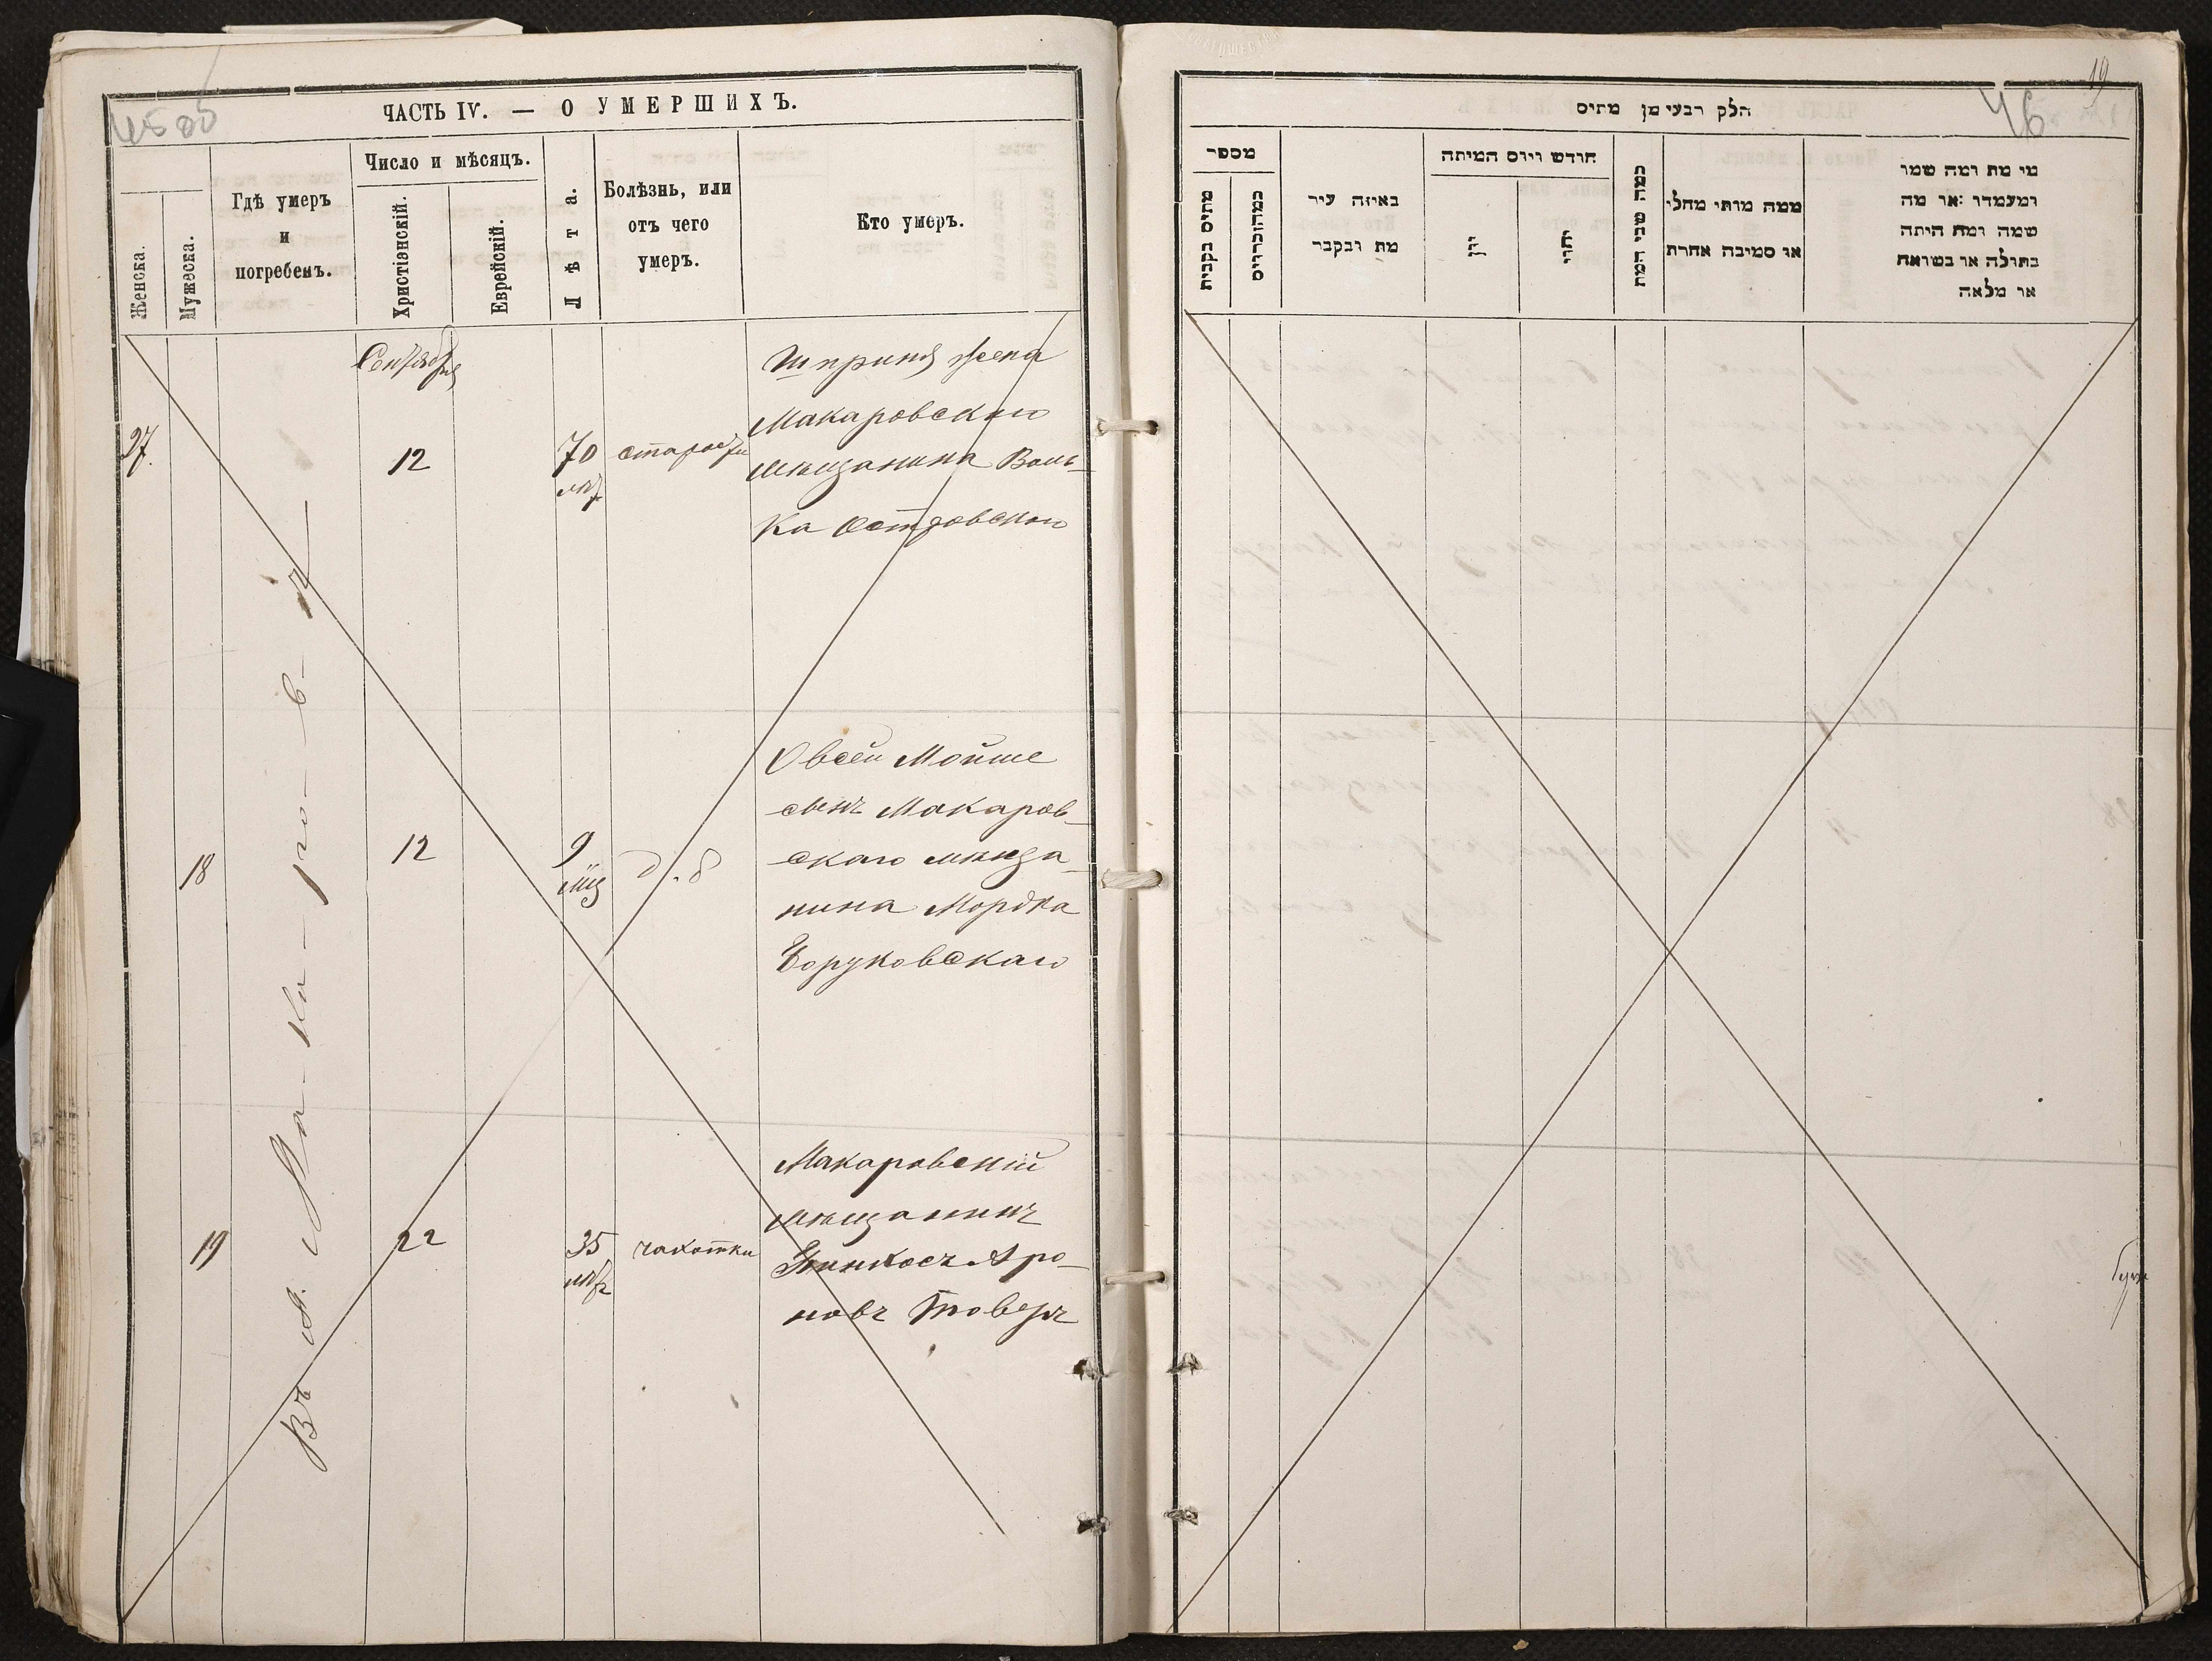 ЧАСТЬ IV. — О УМЕРШИХЪ.
Женска.
Мужеска.
Гдѣ умеръ
и
погребенъ.
Число и мѣсяцъ.
Христіэнскій.
Еврейскій.
Лѣта.
Болѣзнь, или
отъ чего
умеръ.
Кто умеръ.
Сентября
27.
12
70
лѣт
старости
Шприня жена
Макаровскаго
мѣщанина Воль-
ка Островскаго
18
12
9
міц
Овсей Мойше
сынъ Макаров-
скаго мѣща-
нина Мордка
Боруковскаго
19
22
35
лѣтъ
чахотки
Макаровскій
мѣщанинъ
Пинхосъ Аро-
новъ
Въ м. Ма-ка-ро-в-ѣ
19
46
הלק רבעי מן מתים
מספר
מתים בקבית
כמהזכרויס
באיזה עיר
מת ובקבר
חודש ויוס המיתה
יון
יהוי
כמה שני המת
ממה מותי מחלי
או סמיבה אחרת
מי מת ומה שמו
ומעמדו :או מה
שמה ומח היתה
בתולה או בשואח
או מלאה